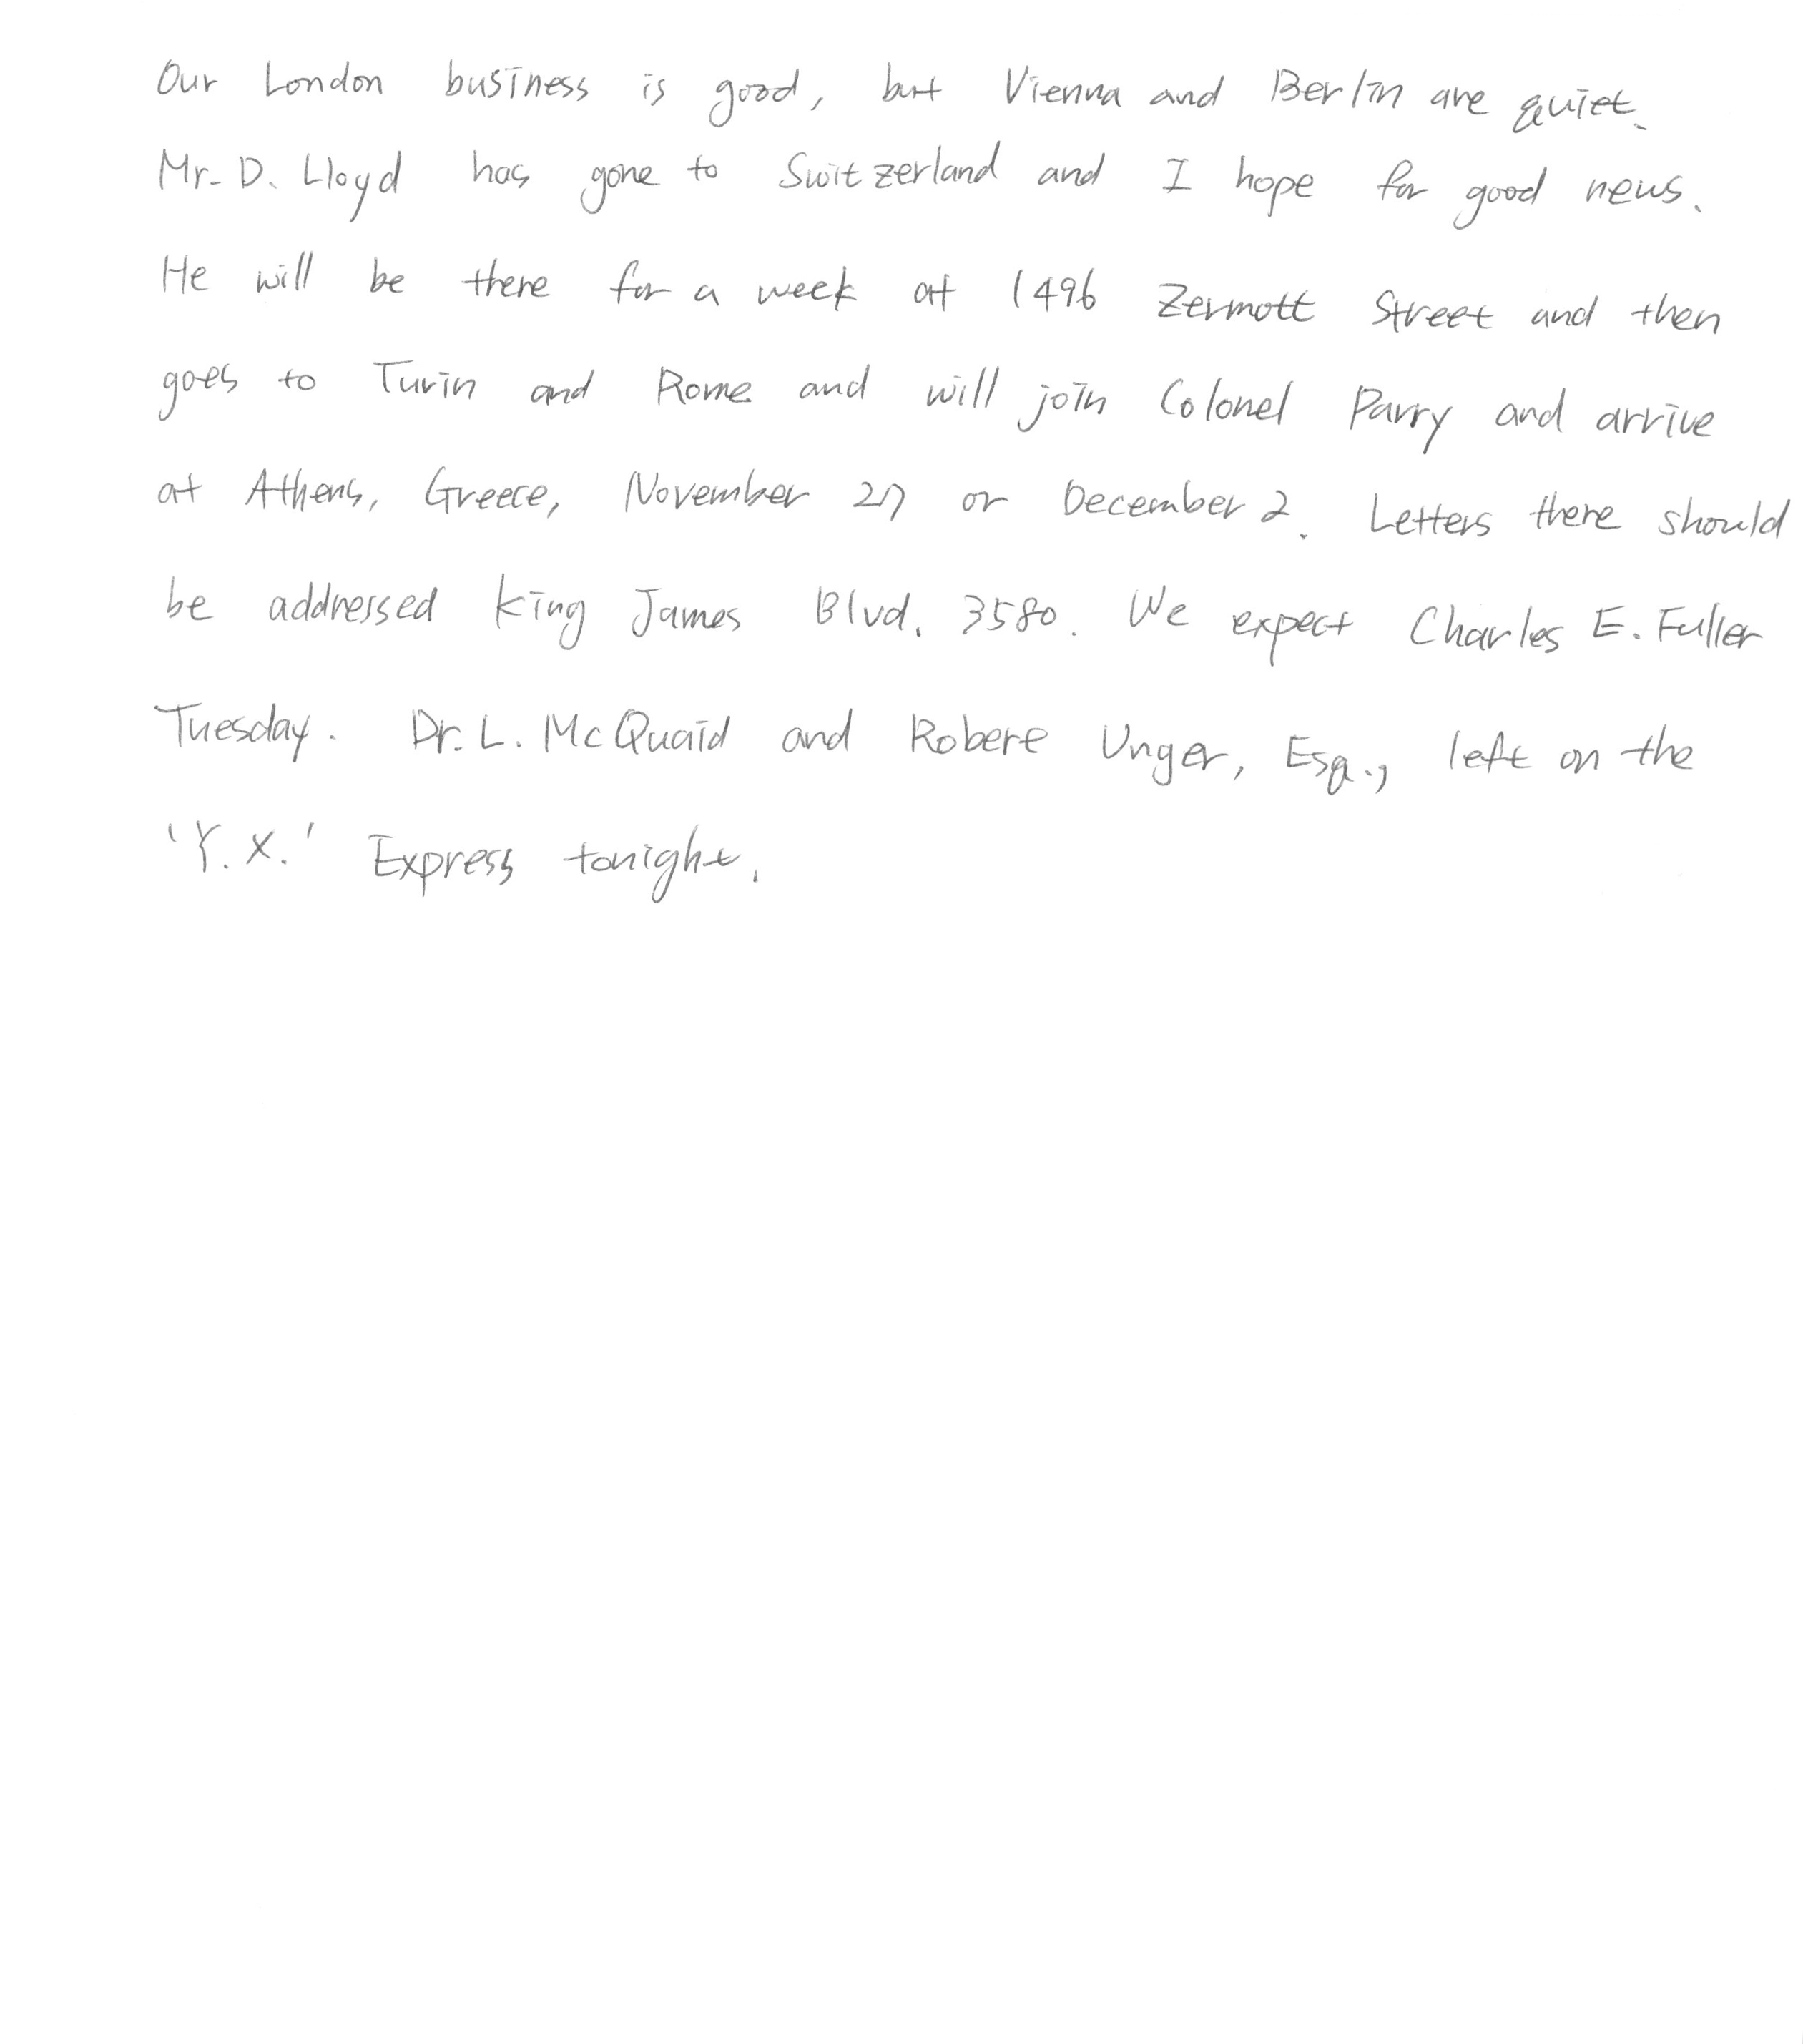 Our London business is good, but Vienna and Berlin are quiet.
Mr. D. Lloyd has gone to Switzerland and I hope for good news.
He will be there for a week at 1496 Zermott Street and then
goes to Turin and Rome and will join Colonel Parry and arrive
at Athens, Greece, November 27 or December 2. Letters there should
be addressed King James Blvd. 3580. We expect Charles E. Fuller
Tuesday. Dr. L. McQuaid and Robert Unger, Esq., left on the
'Y.X.' Express tonight.